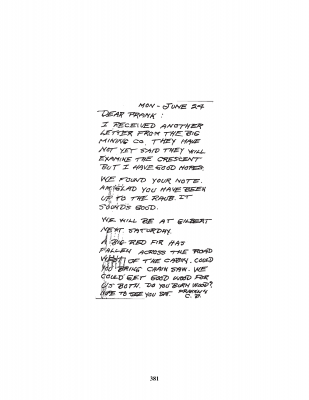 MON - JUNE 24
DEAR FRANK:
I RECEIVED ANOTHER
LETTER FROM THE BIG
MINING CO. THEY HAVE
NOT YET SAID THEY WILL
EXAMINE THE CRESCENT
BUT I HAVE GOOD HOPES.
WE FOUND YOUR NOTE.
AM GLAD YOU HAVE BEEN
UP TO THE RAUB. IT
SOUNDS GOOD.
WE WILL BE AT GILBERT
NEXT SATURDAY.
A BIG RED FIR HAS
FALLEN ACROSS THE ROAD
WEST OF THE CABIN. COULD
YOU BRING CHAIN SAW. WE
COULD GET GOOD WOOD FOR
US BOTH. DO YOU BURN WOOD?
HOPE TO SEE YOU SAT.
C. B.
381